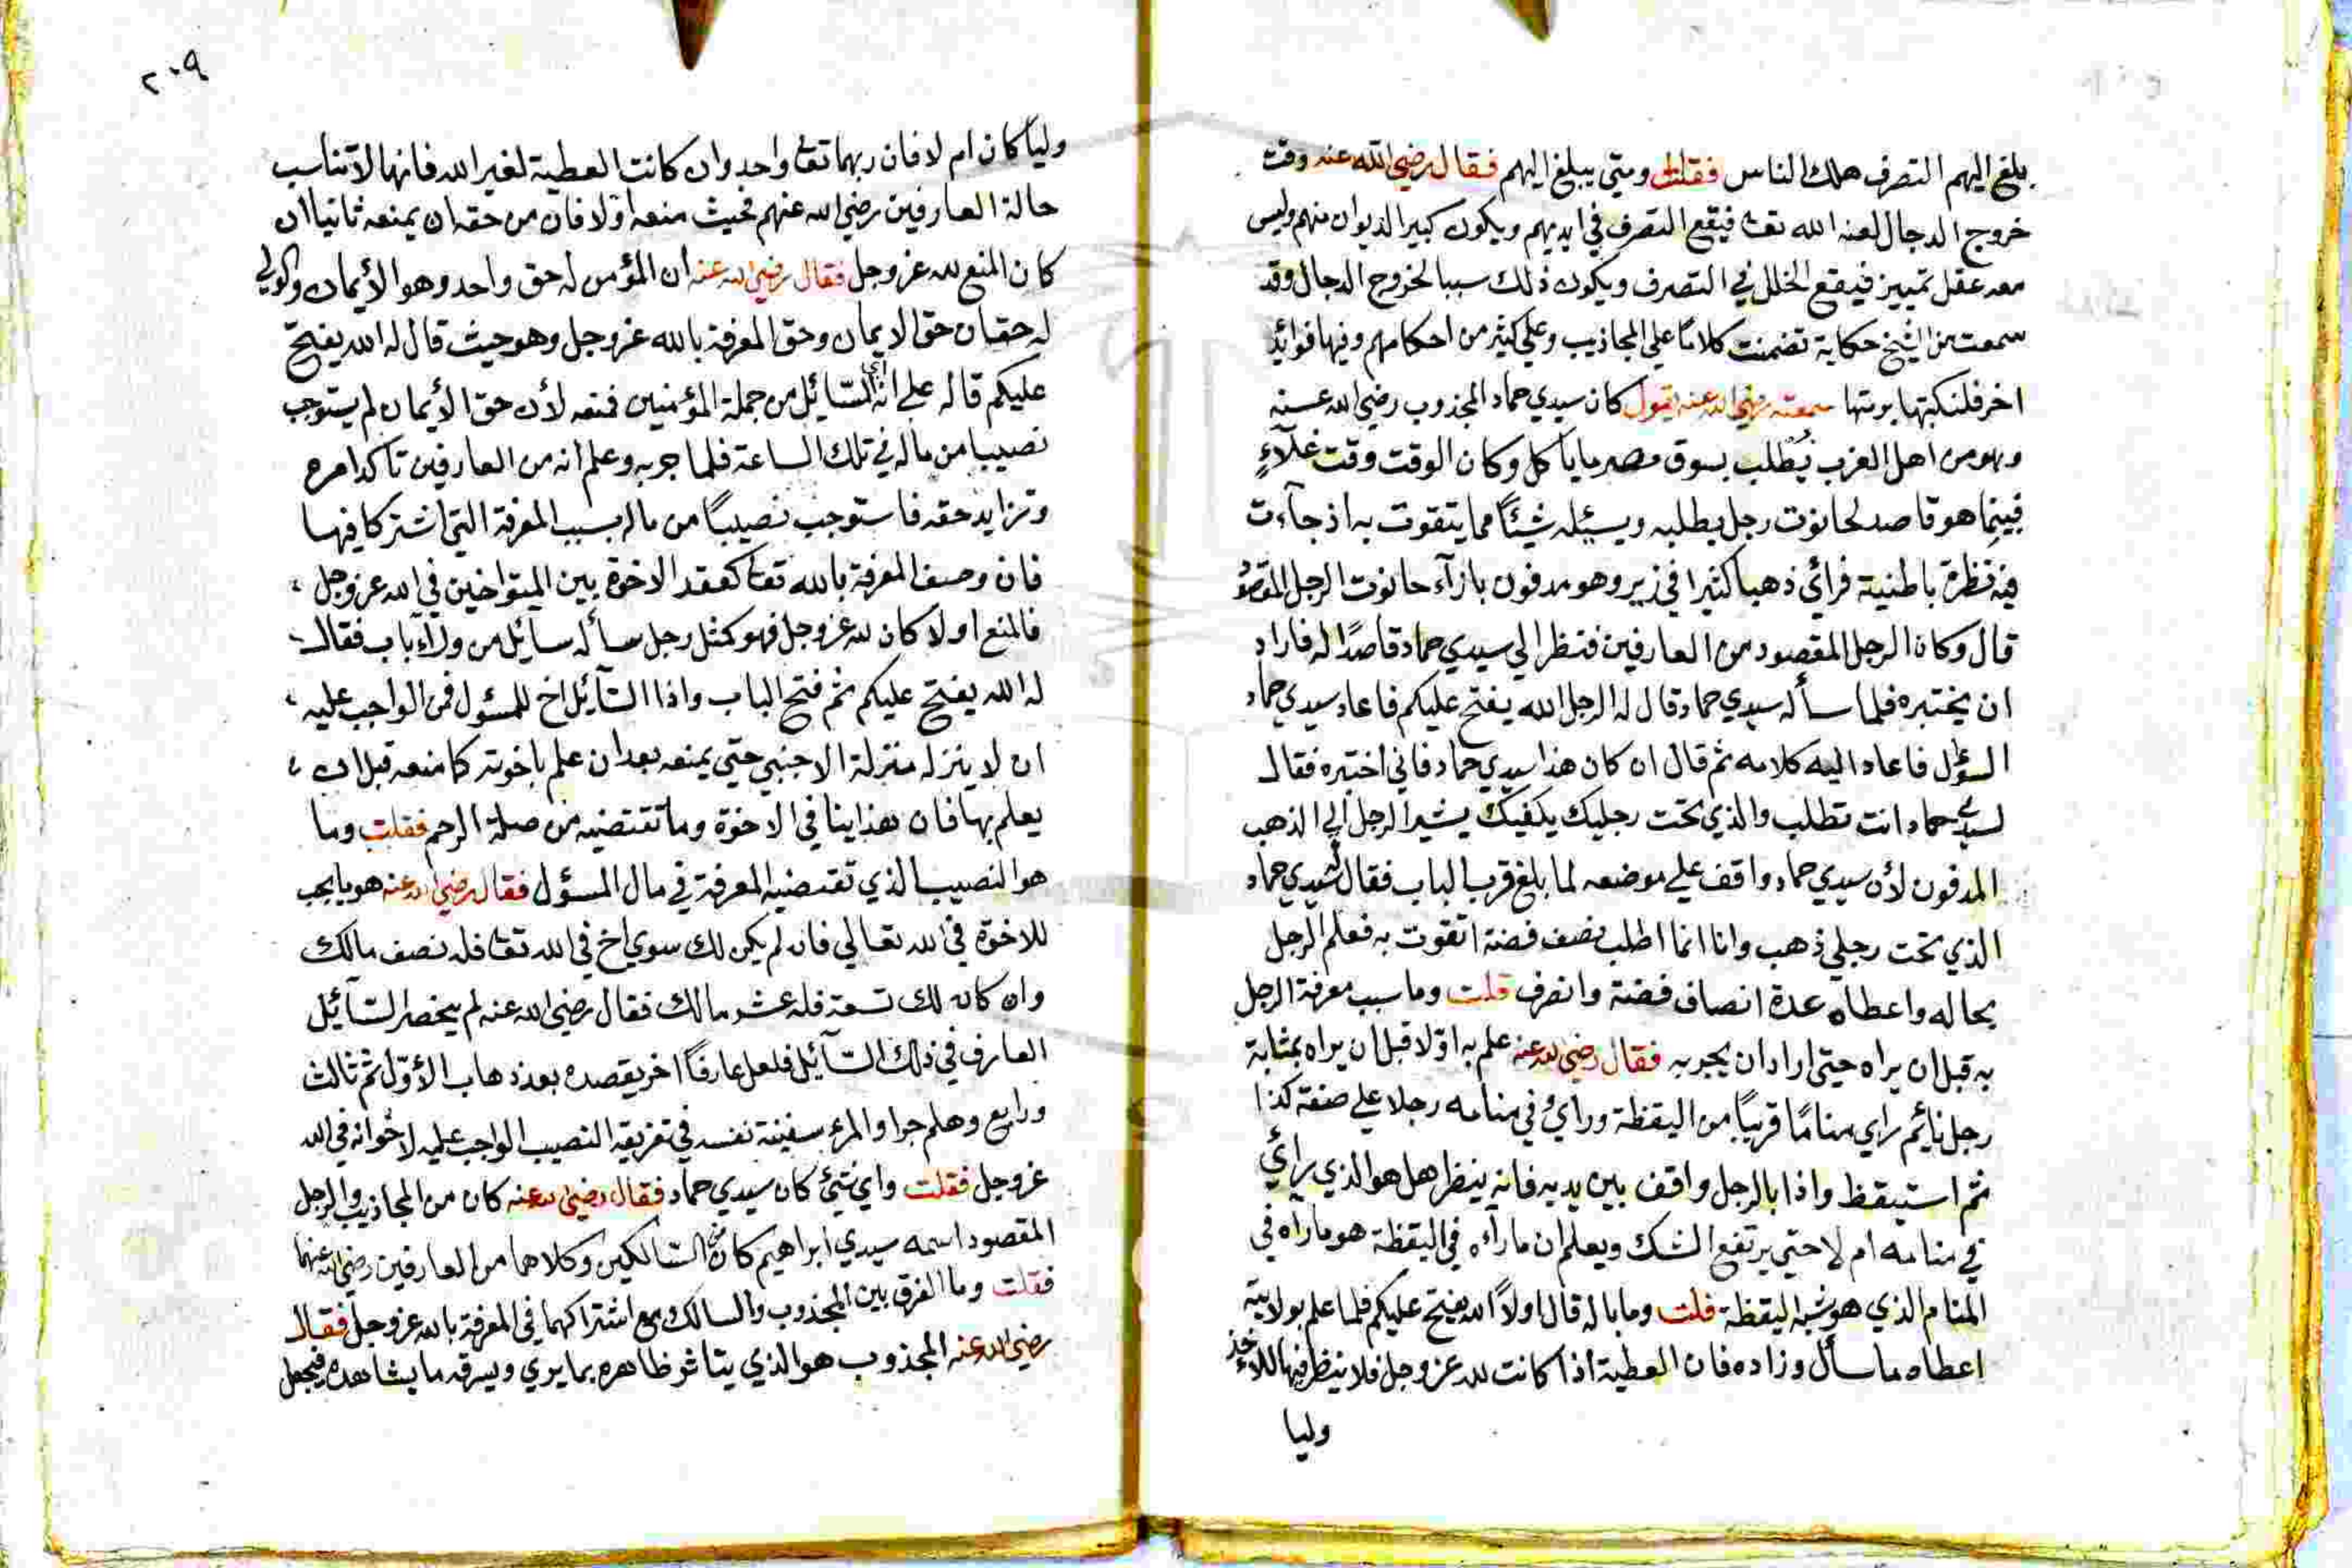 بلغ اليهم التصرف هلك الناس فقلت ومتي يبلغ اليهم فقال رضي الله عنه وقت
خروج الدجال لعنه الله تعا فيقع التصرف في ايديهم ويكون كبير الديوان منهم وليس
معه عقل تمييز فيقع الخلل في التصرف ويكون ذلك سببا لخروج الدجال وقد
سمعت من الشيخ حكاية تضمنت كلاما علي المجاذيب وعلي كثير من احكامهم وفيها فوائد
اخر فلنكتبها برمتها سمعته رضي الله عنه يقول كان سيدي حماد المجذوب رضي الله عنه
وهو من اهل الغرب يطلب بسوق مصر ما ياكل وكان الوقت وقت غلآء
فبينما هو قاصد لحانوت رجل يطلبه ويسئله شيئا مما يتقوت به اذ جآءت
فيه نظرة باطنية فرائ ذهبا كثيرا في زير وهو مدفون بازآء حانوت الرجل المقصود
قال وكان الرجل المقصود من العارفين فنظر الي سيدي حماد قاصدا له فاراد
ان يختبره فلما سأله سيدي حماد قال له الرجل الله يفتح عليكم فاعاد سيدي حماد
السؤل فاعاد اليه كلامه ثم قال ان كان هذا سيدي حماد فاني اختبره فقال
لسيدي حماد انت تطلب والذي تحت رجليك يكفيك يشير الرجل الي الذهب
المدفون لأن سيدي حماد واقف علي موضعه لما بلغ قرب الباب فقال سيدي حماد
الذي تحت رجلي ذهب وانا انما اطلب نصف فضة اتقوت به فعلم الرجل
بحاله واعطاه عدة انصاف فضة وانصرف قلت وما سبب معرفة الرجل
به قبل ان يراه حتي اراد ان يجربه فقال رضي الله عنه علم به اولا قبل ان يراه بمثابة
رجل نايم راي مناما قريبا من اليقظة وراي في منامه رجلا علي صفة كذا
ثم استيقظ واذا بالرجل واقف بين يديه فانه ينظر هل هو الذي رائ
في منامه ام لا حتي يرتفع الشك ويعلم ان ما رآه في اليقظة هو ما رآه في
المنام الذي هو شبه اليقظة قلت وما باله قال اولا الله يفتح عليكم فلما علم بولايته
اعطاه ما سأل وزاده فان العطية اذا كانت لله عز وجل فلا ينظر فيها للاخذ
وليا
٢٠٩
وليا كان ام لا فان ربهما تعا واحد وان كانت العطية لغير الله فانها لا تناسب
حالة العارفين رضي الله عنهم فحيث منعه اولا فان من حقه ان يمنعه ثانيا ان
كان المنع لله عز وجل فقال رضي الله عنه ان المؤمن له حق واحد وهو الأيمان والولي
له حقان حق الايمان وحق المعرفة بالله عز وجل وهو حيث قال له الله يفتح
عليكم قاله علي انه السآئل من جملة المؤمنين فمنعه لأن حق الأيمان لم يستوجب
نصيبا من ماله في تلك الساعة فلما جربه وعلم انه من العارفين تاكد امره
وتزايد حقه فاستوجب نصيبا من ماله بسبب المعرفة التي اشتركا فيها
فان وصف المعرفة بالله تعا كعقد الاخوة بين المتواخين في الله عز وجل
فالمنع اولا كان لله عز وجل فهو كمثل رجل سأله سآئل من ورآء باب فقال
له الله يفتح عليكم ثم فتح الباب واذا السآئل اخ للمسئول فمن الواجب عليه
ان لا ينزله منزلة الاجنبي حتي يمنعه بعد ان علم باخوته كما منعه قبل ان
يعلم بها فان هذا ينافي الاخوة وما تقتضيه من صلة الرحم فقلت وما
هو النصيب الذي تقتضيه المعرفة في مال المسؤل فقال رضي الله عنه هو ما يجب
للاخوة في الله تعالي فان لم يكن لك سوي اخ في الله تعا فله نصف مالك
وان كان لك تسعة فله عشر مالك فقال رضي الله عنه لم ينحصر السآئل
العارف في ذلك السآئل فلعل عارفا اخر يقصده بعد ذهاب الأول ثم ثالث
ورابع وهلم جرا والمرء سفينة نفسه في تفريق النصيب الواجب عليه لاخوانه في الله
عز وجل فقلت واي شئ كان سيدي حماد فقال رضي الله عنه كان من المجاذيب والرجل
المقصود اسمه سيدي ابراهيم كان من السالكين وكلاهما من العارفين رضي الله عنهما
فقلت وما الفرق بين المجذوب والسالك مع اشتراكهما في المعرفة بالله عز وجل فقال
رضي الله عنه المجذوب هو الذي يتاثر ظاهره بما يري ويسرقه ما يشاهده فيجعل